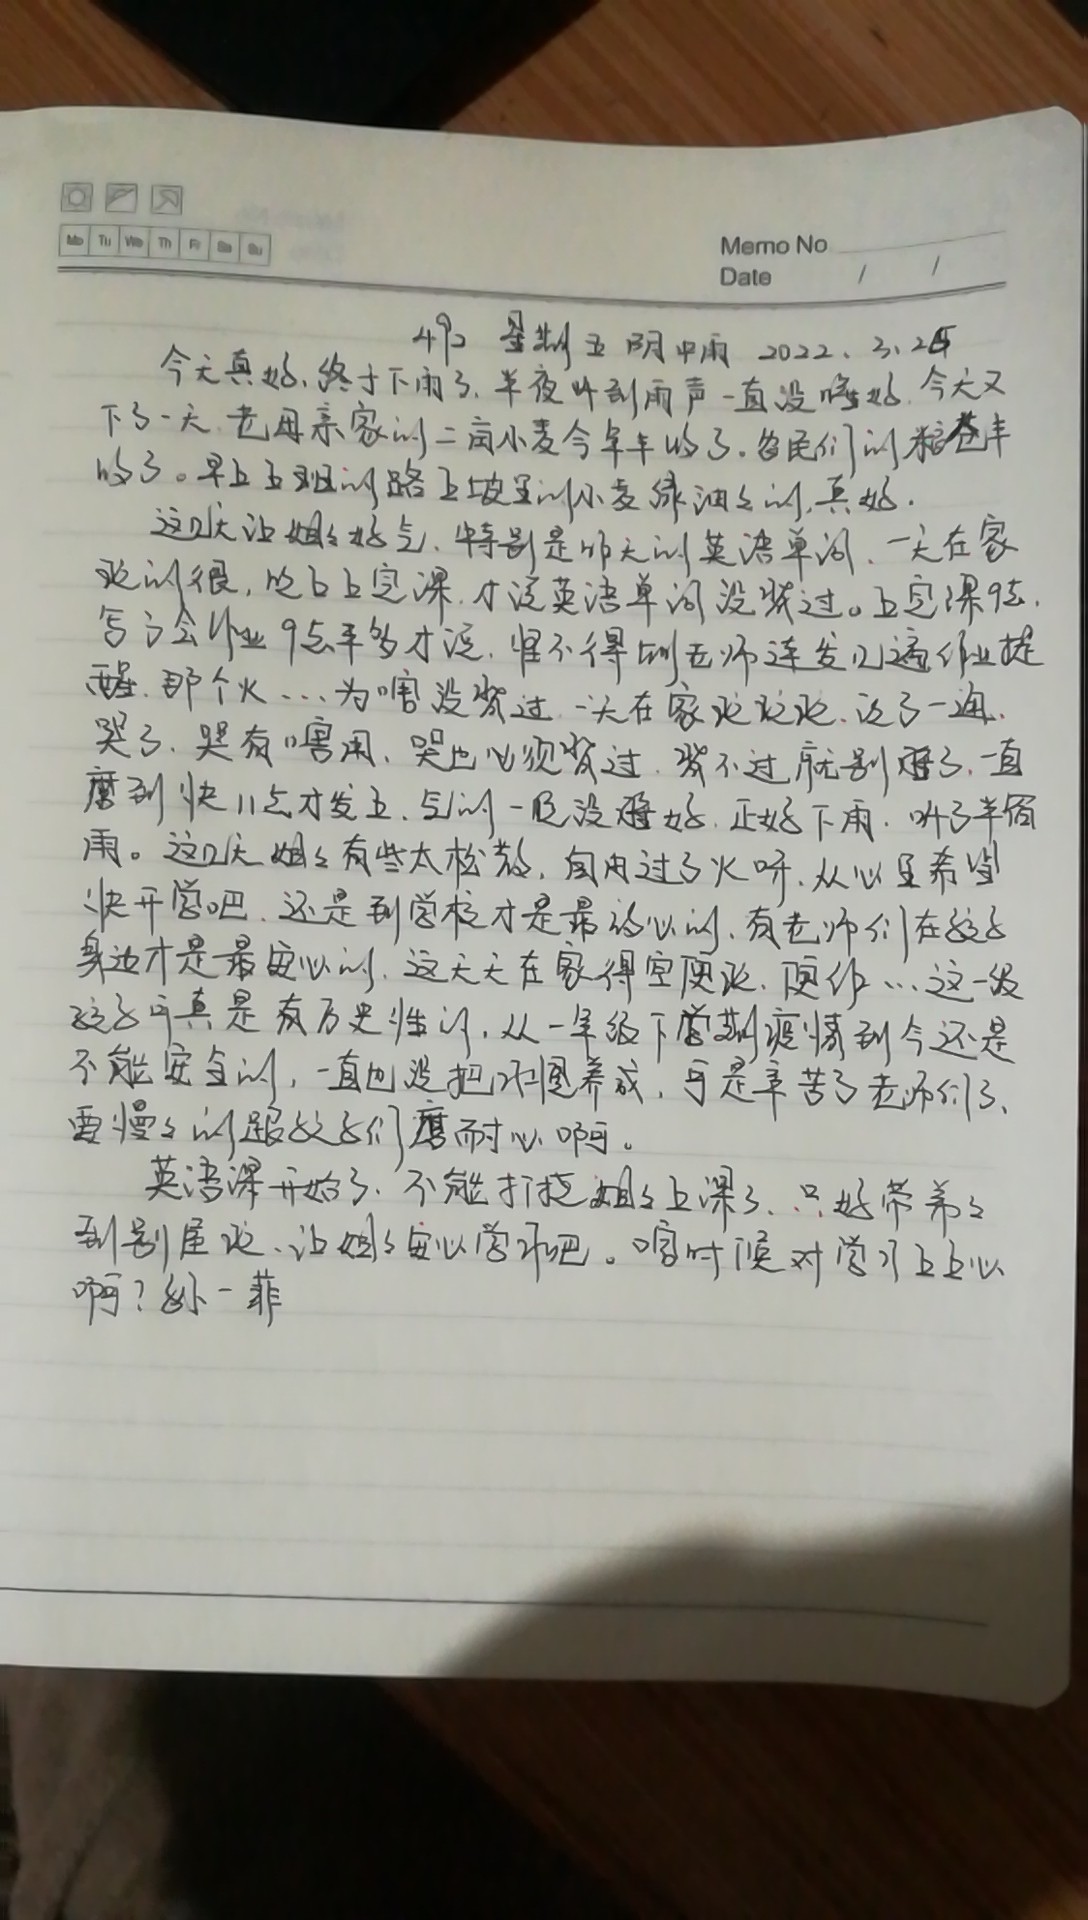 Mo Tu We Th Fr Sa Su
Memo No
Date / /
492 星期五 阴中雨 2022.3.25
今天真好,终于下雨了,半夜听到雨声一直没睡好,今天又
下了一天,老母亲家的二亩小麦今年丰收了。农民们的粮仓丰
收了。早上上班的路上坡里的小麦绿油油的,真好.
这几天让姐姐好气,特别是昨天的英语单词,一天在家
玩的很,晚上上完课,才说英语单词没背过。上完课9点,
写了会作业9点半多才说,怪不得刘老师连发几遍作业提
醒,那个火…为啥没背过,一天在家玩玩玩,说了一通,
哭了,哭有啥用,哭也必须背过,背不过就别睡了,一直
磨到快11点才发上,气的一晚没睡好,正好下雨,听了半宿
雨。这几天姐姐有些太松散,自由过了火呀,从心里希望
快开学吧,还是到学校才是最放心的,有老师们在孩子
身边才是最安心的,这天天在家得空便玩,便作…这一级
孩子可真是有历史性的,从一年级下学期疫情到今还是
不能安身的,一直也没把习惯养成,可是辛苦了老师们了,
要慢慢的跟孩子们磨耐心啊。
英语课开始了,不能打扰姐姐上课了,只好带弟弟
到别屋玩,让姐姐安心学习吧。啥时候对学习上上心
啊?孙一菲